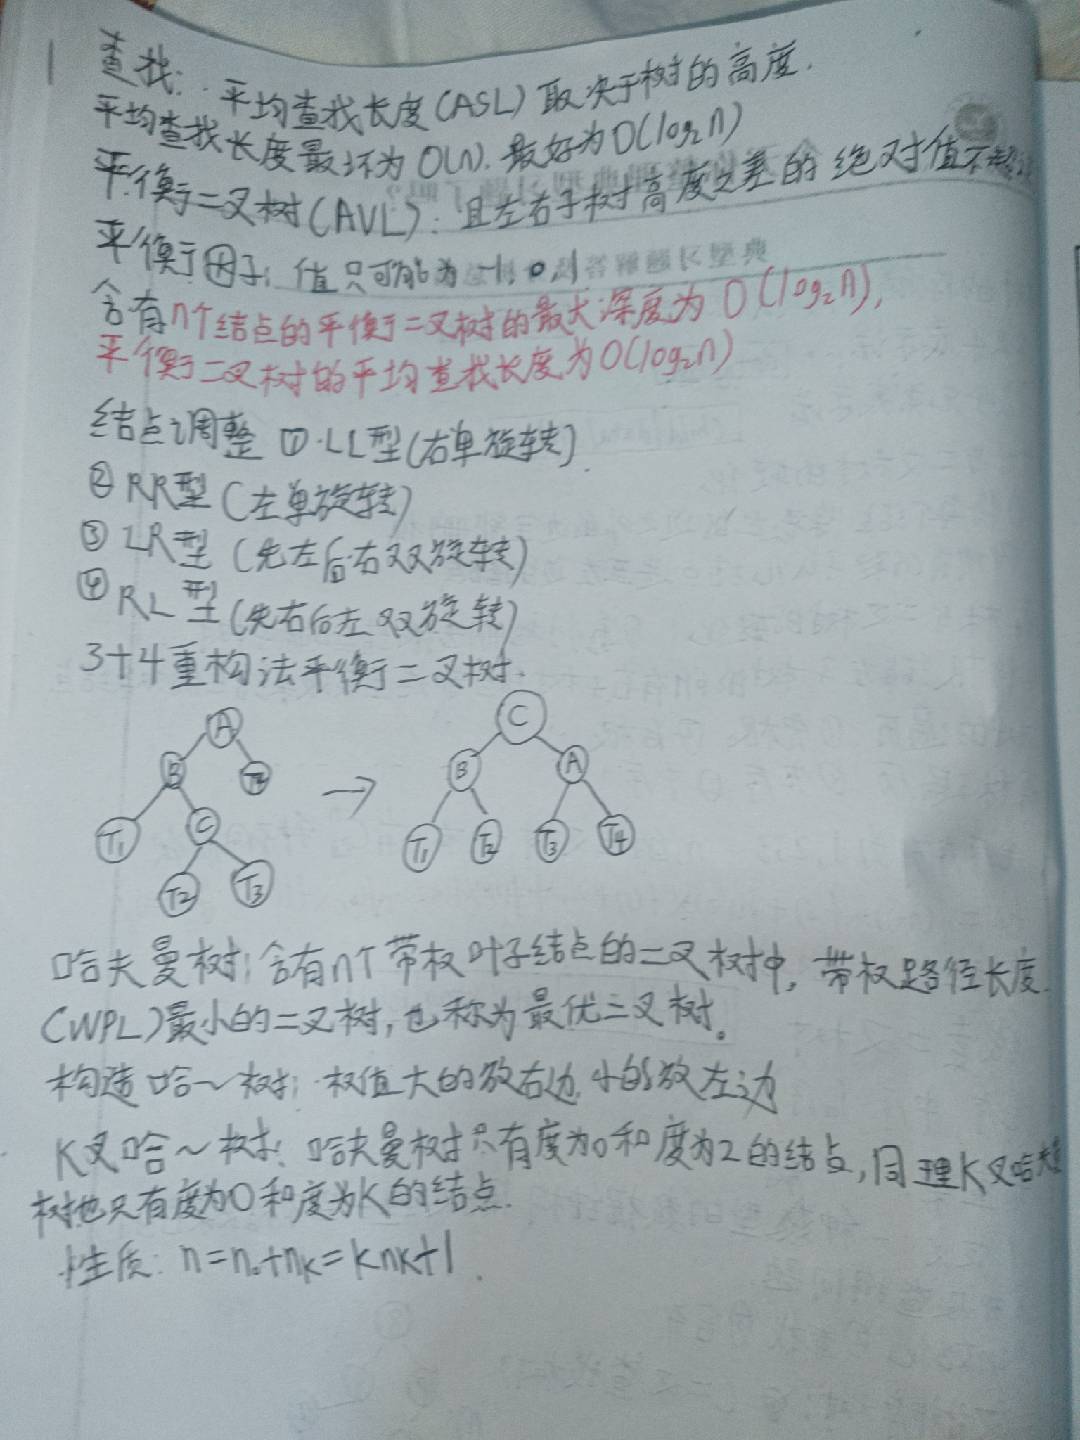 查找: 平均查找长度(ASL)取决于树的高度.
平均查找长度最坏为O(n). 最好为O(log₂n)
平衡二叉树(AVL): 且左右子树高度之差的绝对值不超过
平衡因子: 值只可能为-1, 0, 1
含有n个结点的平衡二叉树的最大深度为O(log₂n),
平衡二叉树的平均查找长度为O(log₂n)
结点调整 ①·LL型(右单旋转).
② RR型(左单旋转)
③ LR型(先左后右双旋转)
④ RL型(先右后左双旋转)
3+4重构法平衡二叉树.
A C
B B A
T₁ C → T₁ T₂ T₃ T₄
T₂ T₃
哈夫曼树: 含有n个带权叶子结点的二叉树中, 带权路径长度
(WPL)最小的二叉树, 也称为最优二叉树。
构造哈~树: 权值大的放右边, 小的放左边
K叉哈~树: 哈夫曼树只有度为0和度为2的结点, 同理K叉哈夫曼
树也只有度为0和度为K的结点.
性质: n=n₀+nₖ=knₖ+1.